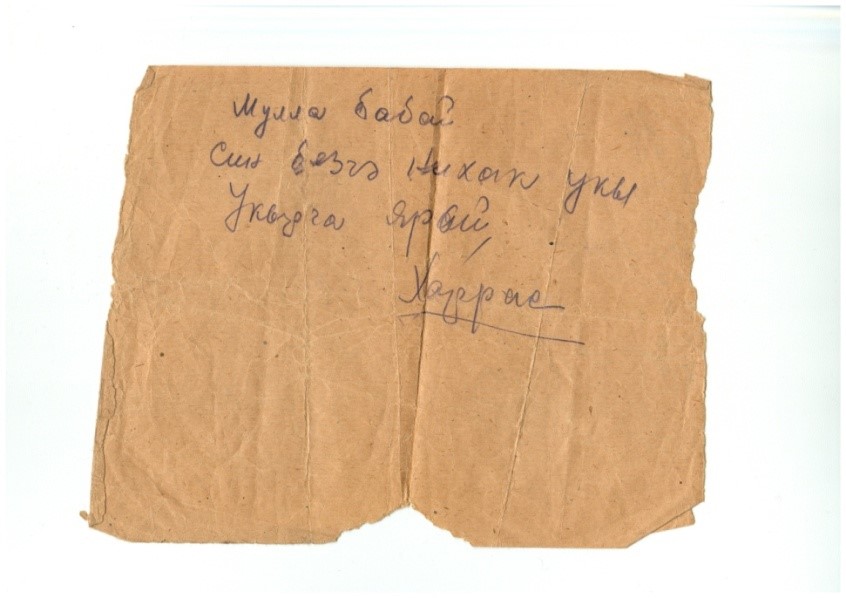 Мулла бабай
Син безгә никах укы
Укырга ярай,
Харрас